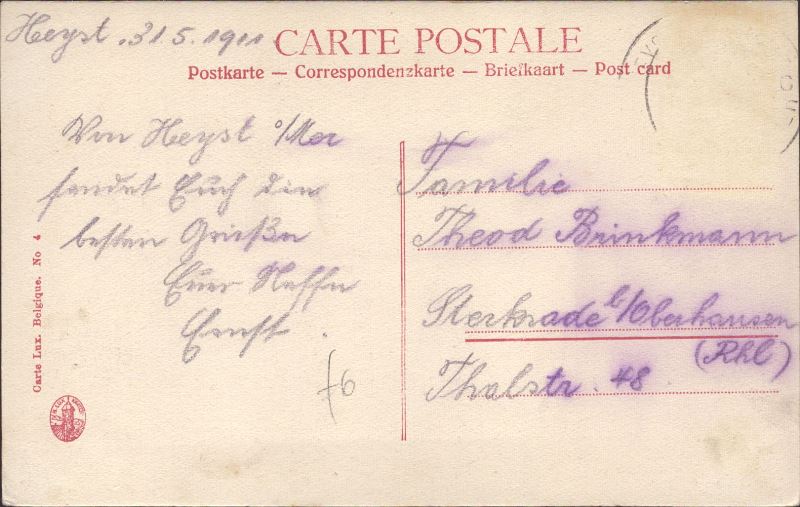 Heyst. 31.5.1911
CARTE POSTALE
Postkarte — Correspondenzkarte — Briefkaart — Post card
Von Heyst o/Mer
sendet Euch die
besten Grüße
Euer Neffe
Ernst.
f6
Familie
Theod Brinkmann
Sterkrade b/Oberhausen
(Rhl)
Thalstr. 48
Carte Lux. Belgique. No 4